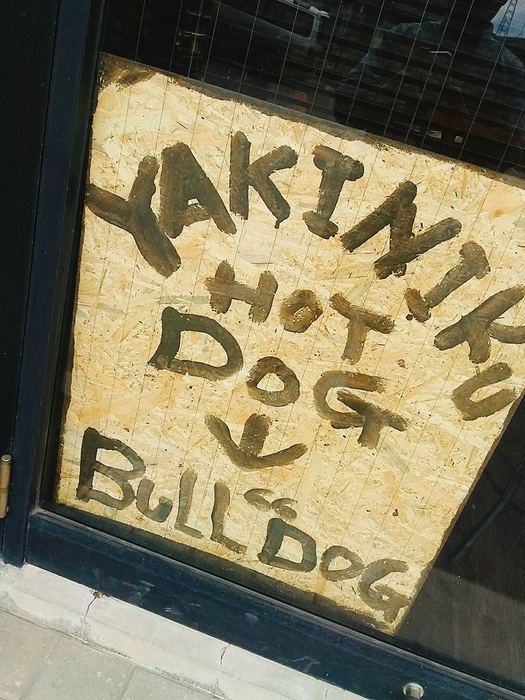 YAKINIKU
HOT
DOG
↓
BULL "DOG